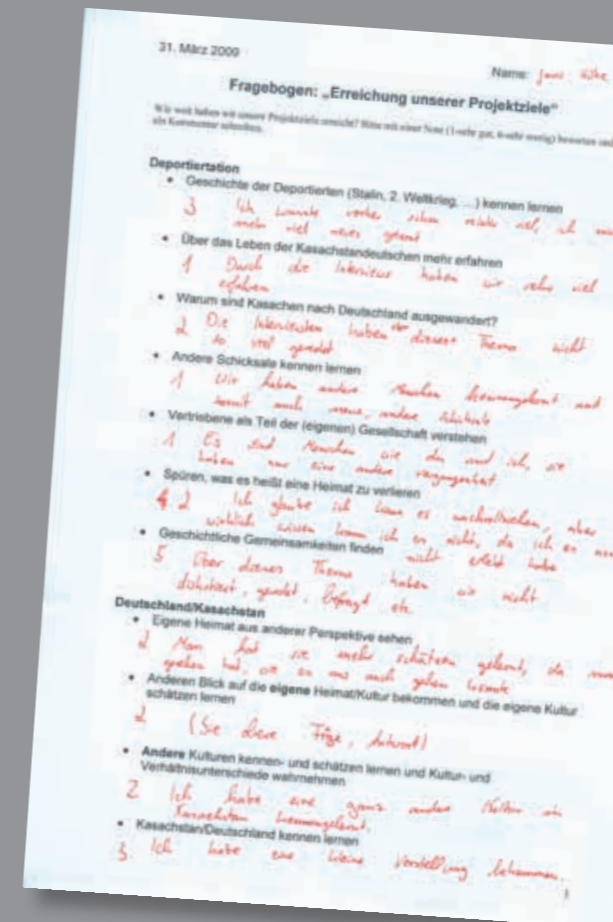 31. März 2009
Name:
Fragebogen: „Erreichung unserer Projektziele"
Wie weit haben wir unsere Projektziele erreicht? Bitte mit einer Note (1-sehr gut, 6-sehr wenig) bewerten und
als Kommentar schreiben.
Deportiertation
• Geschichte der Deportierten (Stalin, 2. Weltkrieg, ...) kennen lernen
3 Ich wusste vorher schon relativ viel, ich
mehr viel neues gelernt
• Über das Leben der Kasachstandeutschen mehr erfahren
1 Durch die Interviews haben wir sehr viel
erfahren
• Warum sind Kasachen nach Deutschland ausgewandert?
2 Die Interviewten haben über dieses Thema nicht
so viel geredet
• Andere Schicksale kennen lernen
1 Wir haben andere Menschen kennengelernt und
somit auch neue, andere Schicksale
• Vertriebene als Teil der (eigenen) Gesellschaft verstehen
1 Es sind Menschen wie du und ich, sie
haben nur eine andere vergangenheit
• Spüren, was es heißt eine Heimat zu verlieren
2 Ich glaube ich kann es nachvollziehen, aber
wirklich wissen kann ich es nicht, da ich es
nicht erlebt habe
• Geschichtliche Gemeinsamkeiten finden
5 Über dieses Thema haben wir nicht
diskutiert, geredet, befragt etc.
Deutschland/Kasachstan
• Eigene Heimat aus anderer Perspektive sehen
2 Man hat sie mehr schätzen gelernt, da
gesehen hat, wie es uns auch gehen könnte
• Anderen Blick auf die eigene Heimat/Kultur bekommen und die eigene Kultur
schätzen lernen
2 (Sie obere Frage, Antwort)
• Andere Kulturen kennen- und schätzen lernen und Kultur- und
Verhältnisunterschiede wahrnehmen
2 Ich habe eine ganz andere Kultur in
Kasachstan kennengelernt.
• Kasachstan/Deutschland kennen lernen
3. Ich habe eine kleine Vorstellung bekommen.
1